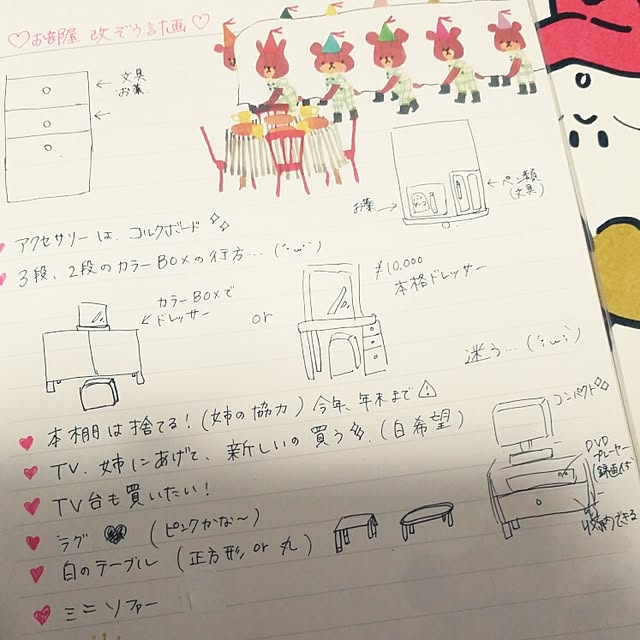 ♡お部屋 改ぞう計画♡
← 文具
お薬
←
お薬→
←ペン類
(文具)
♥ アクセサリーは、コルクボード
♥ 3段、2段のカラーBOXの行方…(´･ω･`)
←カラーBOXで
ドレッサー
or
¥10,000
本格ドレッサー
迷う…(´;ω;`)
♥ 本棚は捨てる!(姉の協力)今年、年末まで⚠
♥ TV、姉にあげて、新しいの買う
(白希望)
♥ TV台も買いたい!
コンパクト
DVD
プレーヤー
(録画付
収納できる
♥ ラグ ♥ (ピンクかな〜)
♥ 白のテーブル (正方形 or 丸)
♥ ミニソファー